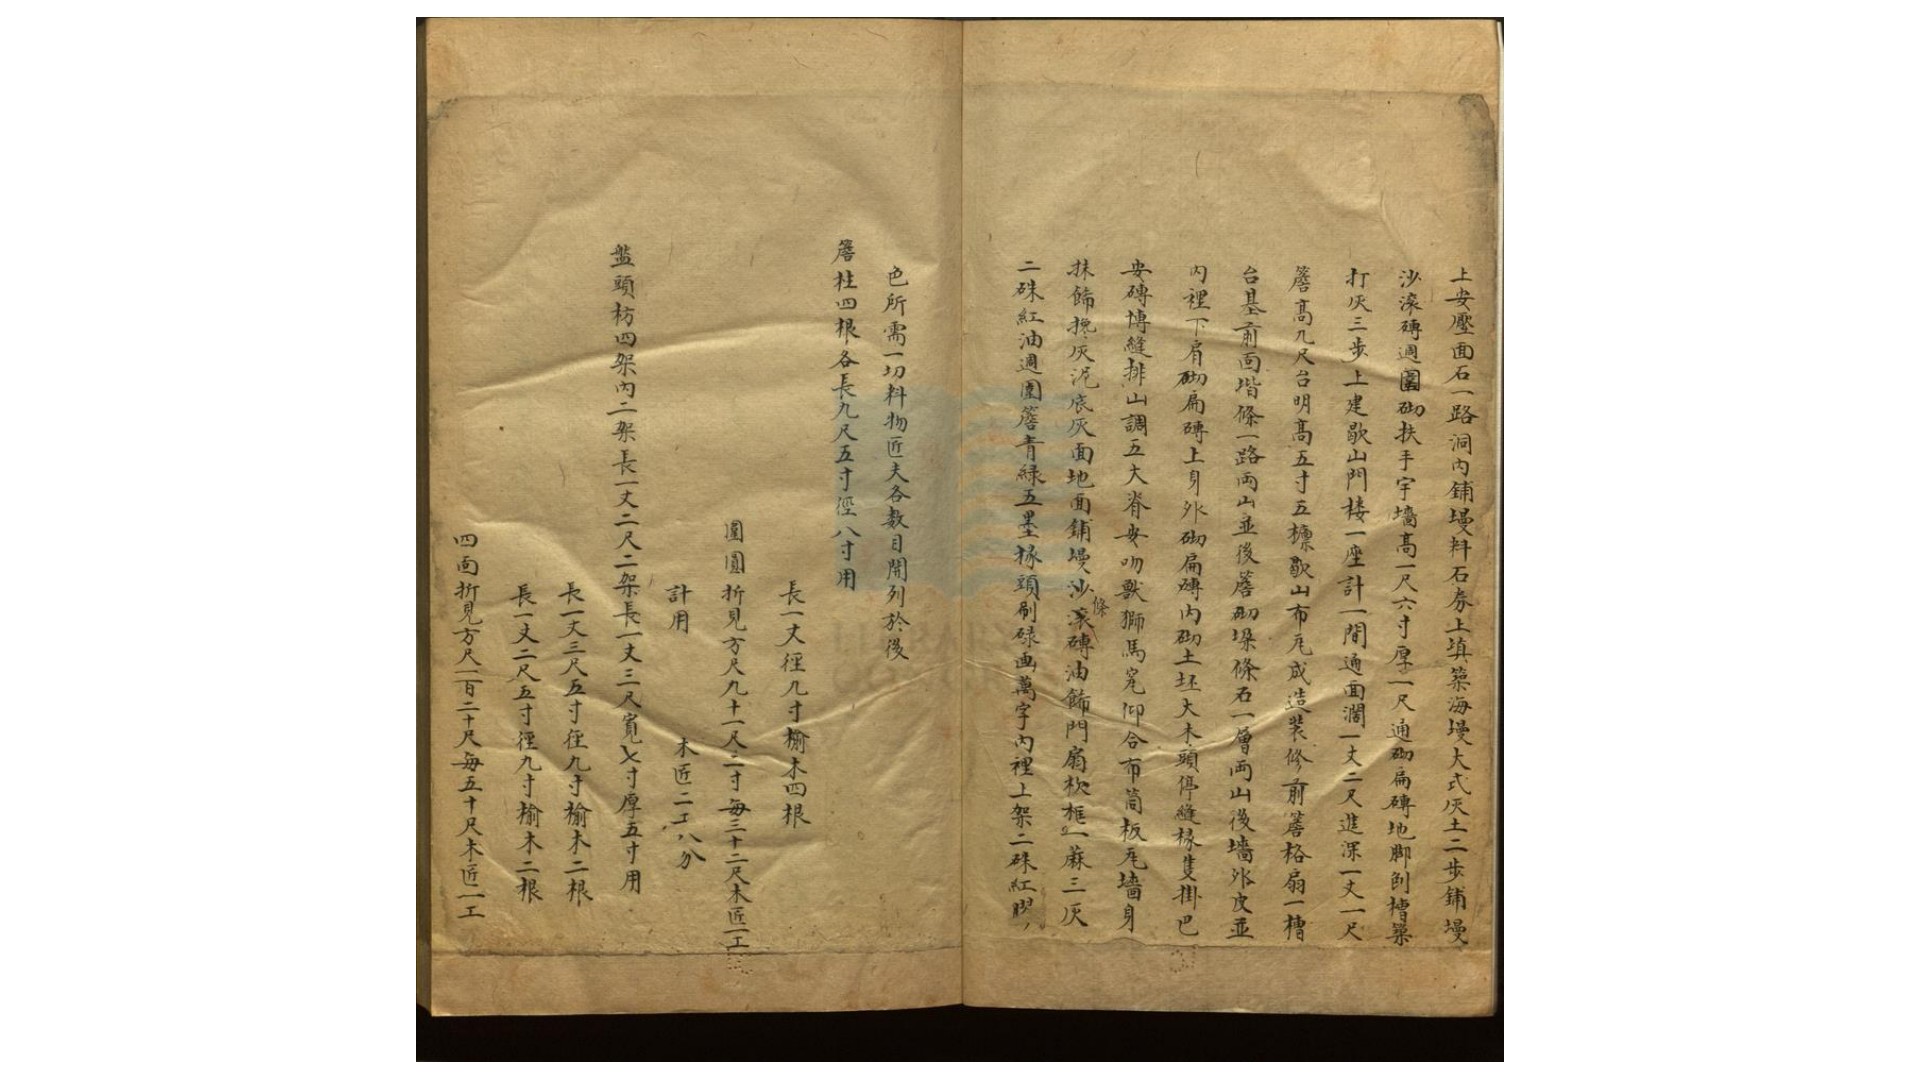 上安壓面石一路洞内鋪墁料石券上填築海墁大式灰土二步鋪墁
沙滚磚週圍砌扶手宇墻高一尺六寸厚一尺通砌扁磚地脚刨槽築
打灰三步上建歇山門楼一座計一間通面濶一丈二尺進深一丈一尺
簷高九尺台明高五寸五檁歇山布瓦成造装修前簷格扇一槽
台基前面堦條一路両山並後簷砌垛條石一層両山後墻外皮並
内裡下肩砌扁磚上身外砌扁磚内砌土坯大木頭停縫椽隻掛巴
安磚博縫排山調五大脊安吻獸獅馬宽仰合布筒板瓦墻身
抹餙搀灰泥底灰面地面鋪墁沙滚磚油餙門扇杴框一蔴三灰
條
二硃紅油週圍簷青緑五墨椽頭刷碌画萬字内裡上架二硃紅膠
色所需一切料物匠夫各数目開列於後
簷柱四根各長九尺五寸徑八寸用
長一丈徑九寸榆木四根
圍圓折見方尺九十一尺二寸每三十二尺木匠一工
計用
木匠二工八分
盤頭枋四架内二架長一丈二尺二架長一丈三尺寬七寸厚五寸用
長一丈三尺五寸徑九寸榆木二根
長一丈二尺五寸徑九寸榆木二根
四面折見方尺一百二十尺每五十尺木匠一工